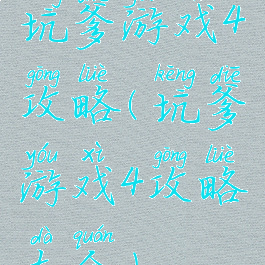 坑爹游戏4
gōng lüè kēng diē
攻略(坑爹
yóu xì gōng lüè
游戏4攻略
dà quán
大全)